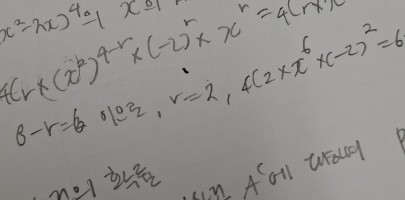 x²-2x)⁴의 x의
₄Cr×(x²)⁴⁻ʳ×(-2)ʳ×xʳ=₄Cr×
8-r=6 이므로, r=2, ₄C₂×x⁶×(-2)²=6
의 확률
A^c에 대하여 P